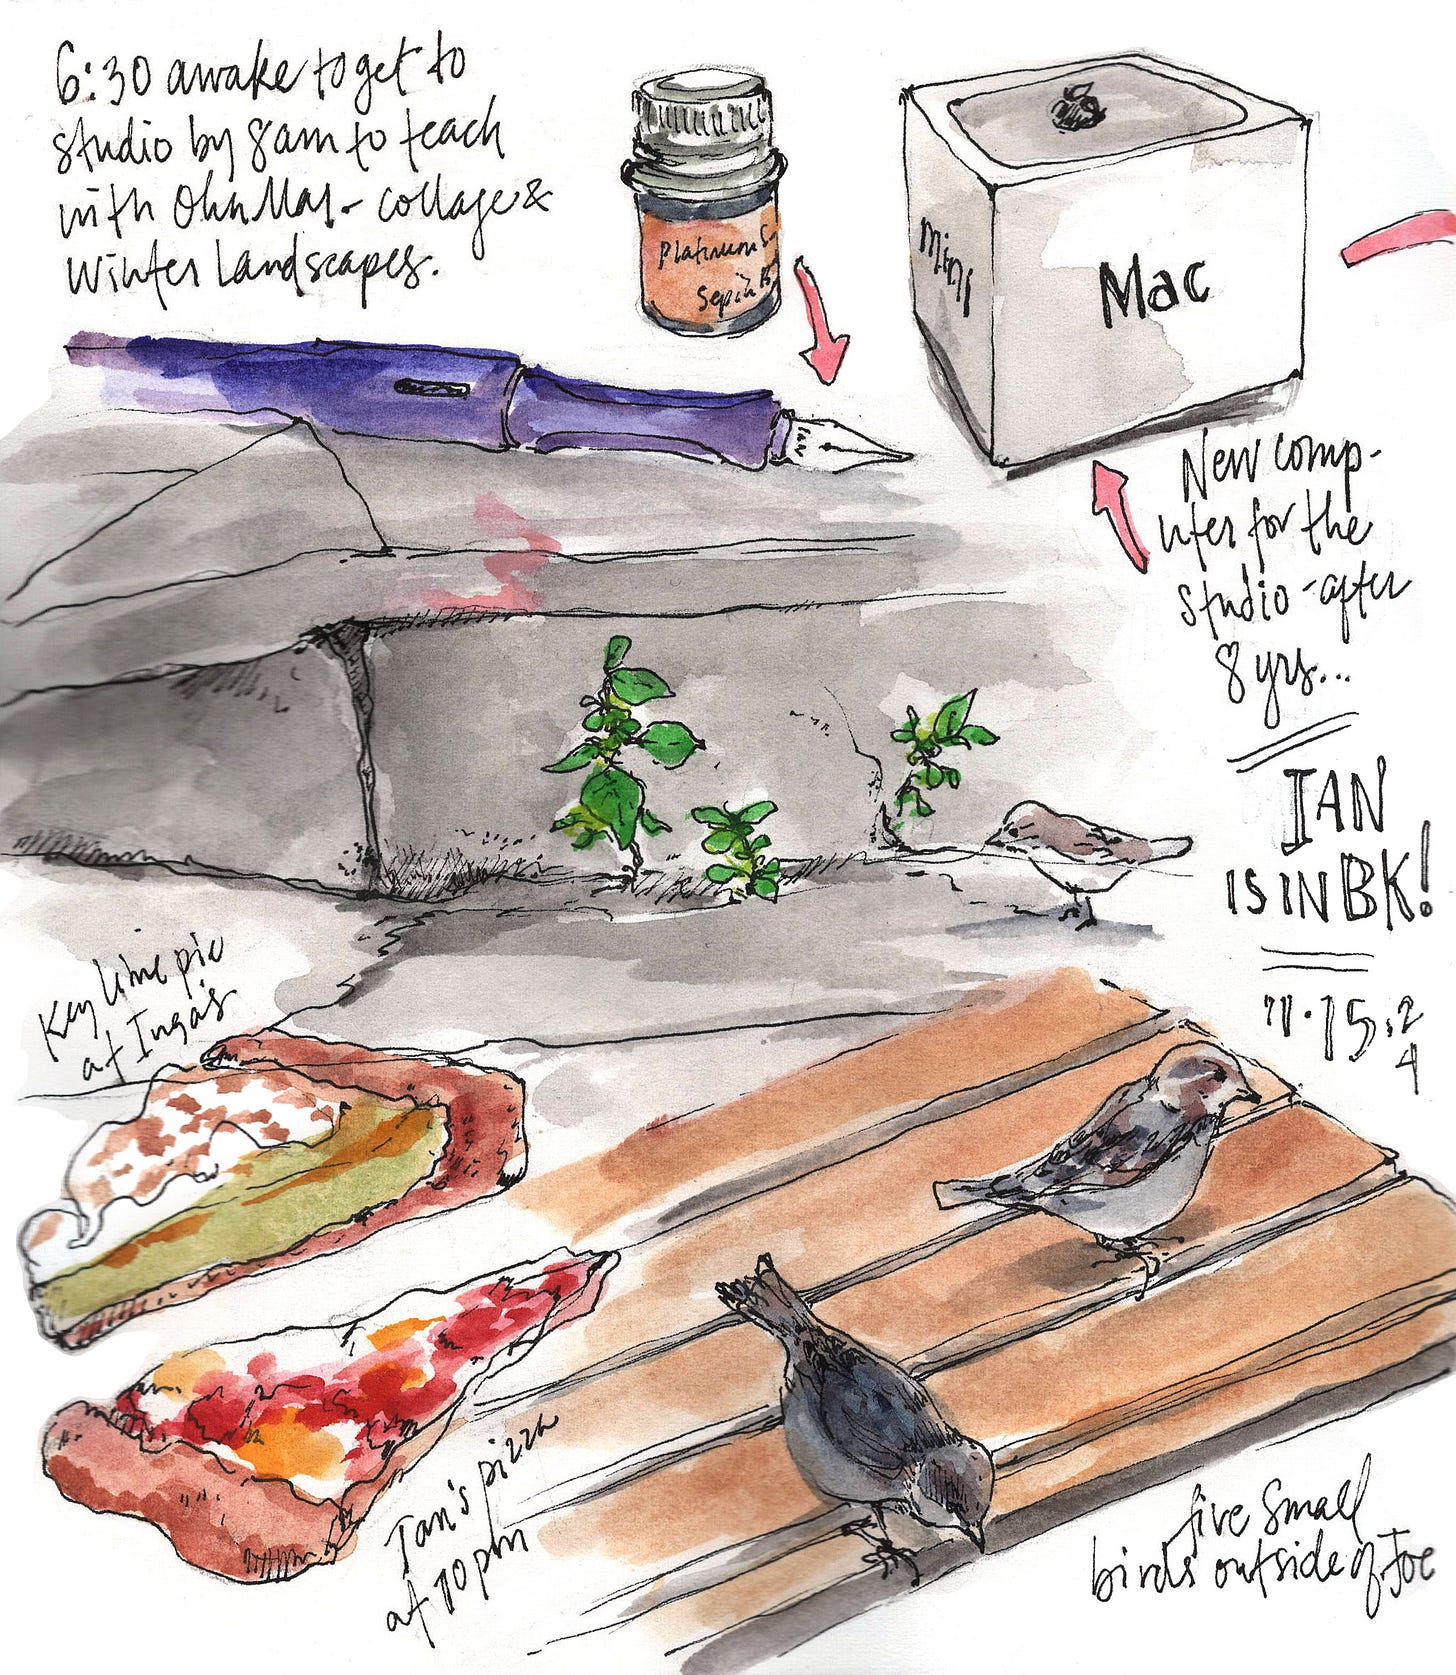 6:30 awake to get to
studio by 8am to teach
with Ohn Mar - collage &
Winter Landscapes.
Platinum
Sepia
Mini
Mac
New comp-
uter for the
studio - after
8 yrs...
IAN
IS IN BK!
11.15.24
Key lime pie
at Inga's
Ian's pizza
at 10pm
five small
birds outside of Joe